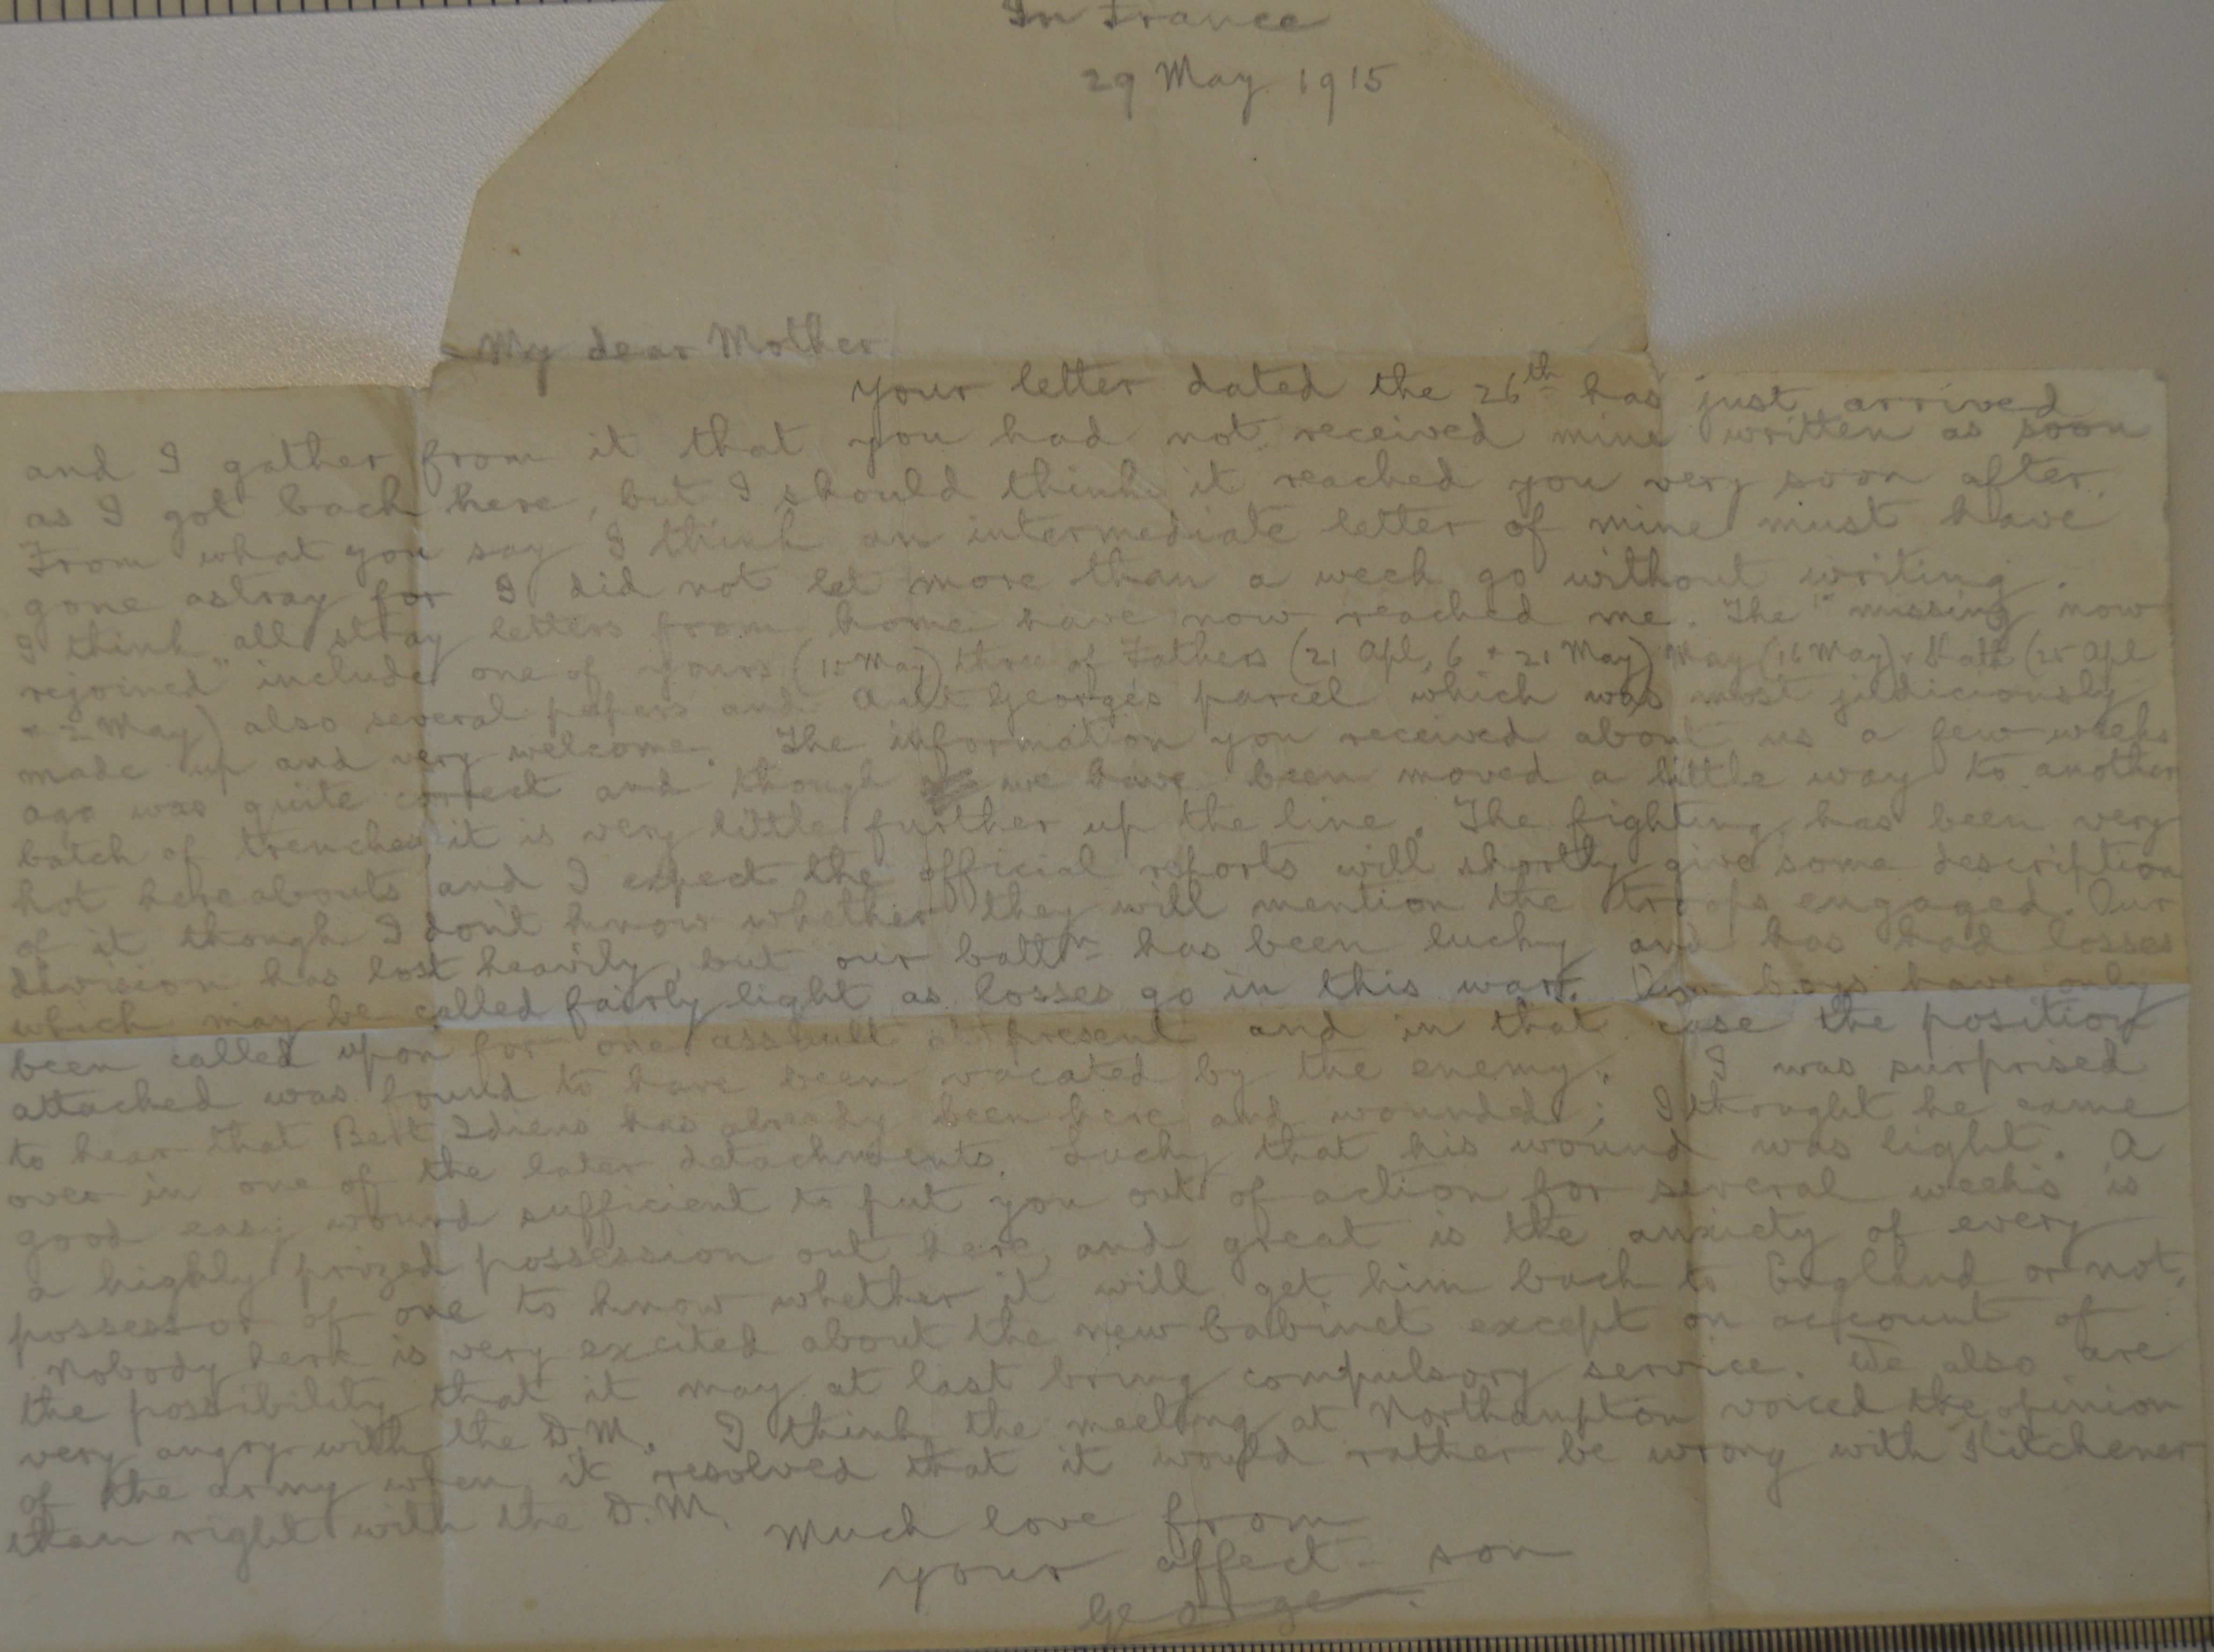 In France
29 May 1915
My dear Mother
Your letter dated the 26th has just arrived
and I gather from it that you had not received mine written as soon
as I got back here, but I should think it reached you very soon after.
From what you say I think an intermediate letter of mine must have
gone astray for I did not let more than a week go without writing.
I think all stray letters from home have now reached me. The "missing now
rejoined" includes one of yours (15 May) three of Fathers (21 Apl, 6 + 21 May) May (16 May) + Kath (25 Apl
+ 2 May) also several papers and Aunt George's parcel which was most judiciously
made up and very welcome. The information you received about us a few weeks
ago was quite correct and though we have been moved a little way to another
batch of trenches, it is very little further up the line. The fighting has been very
hot hereabouts and I expect the official reports will shortly give some description
of it though I don't know whether they will mention the troops engaged. Our
division has lost heavily, but our battn has been lucky and has had losses
which may be called fairly light as losses go in this war. Our boys have only
been called upon for one assault at present and in that case the position
attacked was found to have been vacated by the enemy. I was surprised
to hear that Bert Idiens has already been here and wounded; I thought he came
over in one of the later detachments. Lucky that his wound was light. A
good easy wound sufficient to put you out of action for several weeks is
a highly prized possession out here, and great is the anxiety of every
possessor of one to know whether it will get him back to England or not.
Nobody here is very excited about the new Cabinet except on account of
the possibility that it may at last bring compulsory service. We also are
very angry with the D.M. I think the meeting at Northampton voiced the opinion
of the army when it resolved that it would rather be wrong with Kitchener
than right with the D.M.
Much love from
your affect son
George.